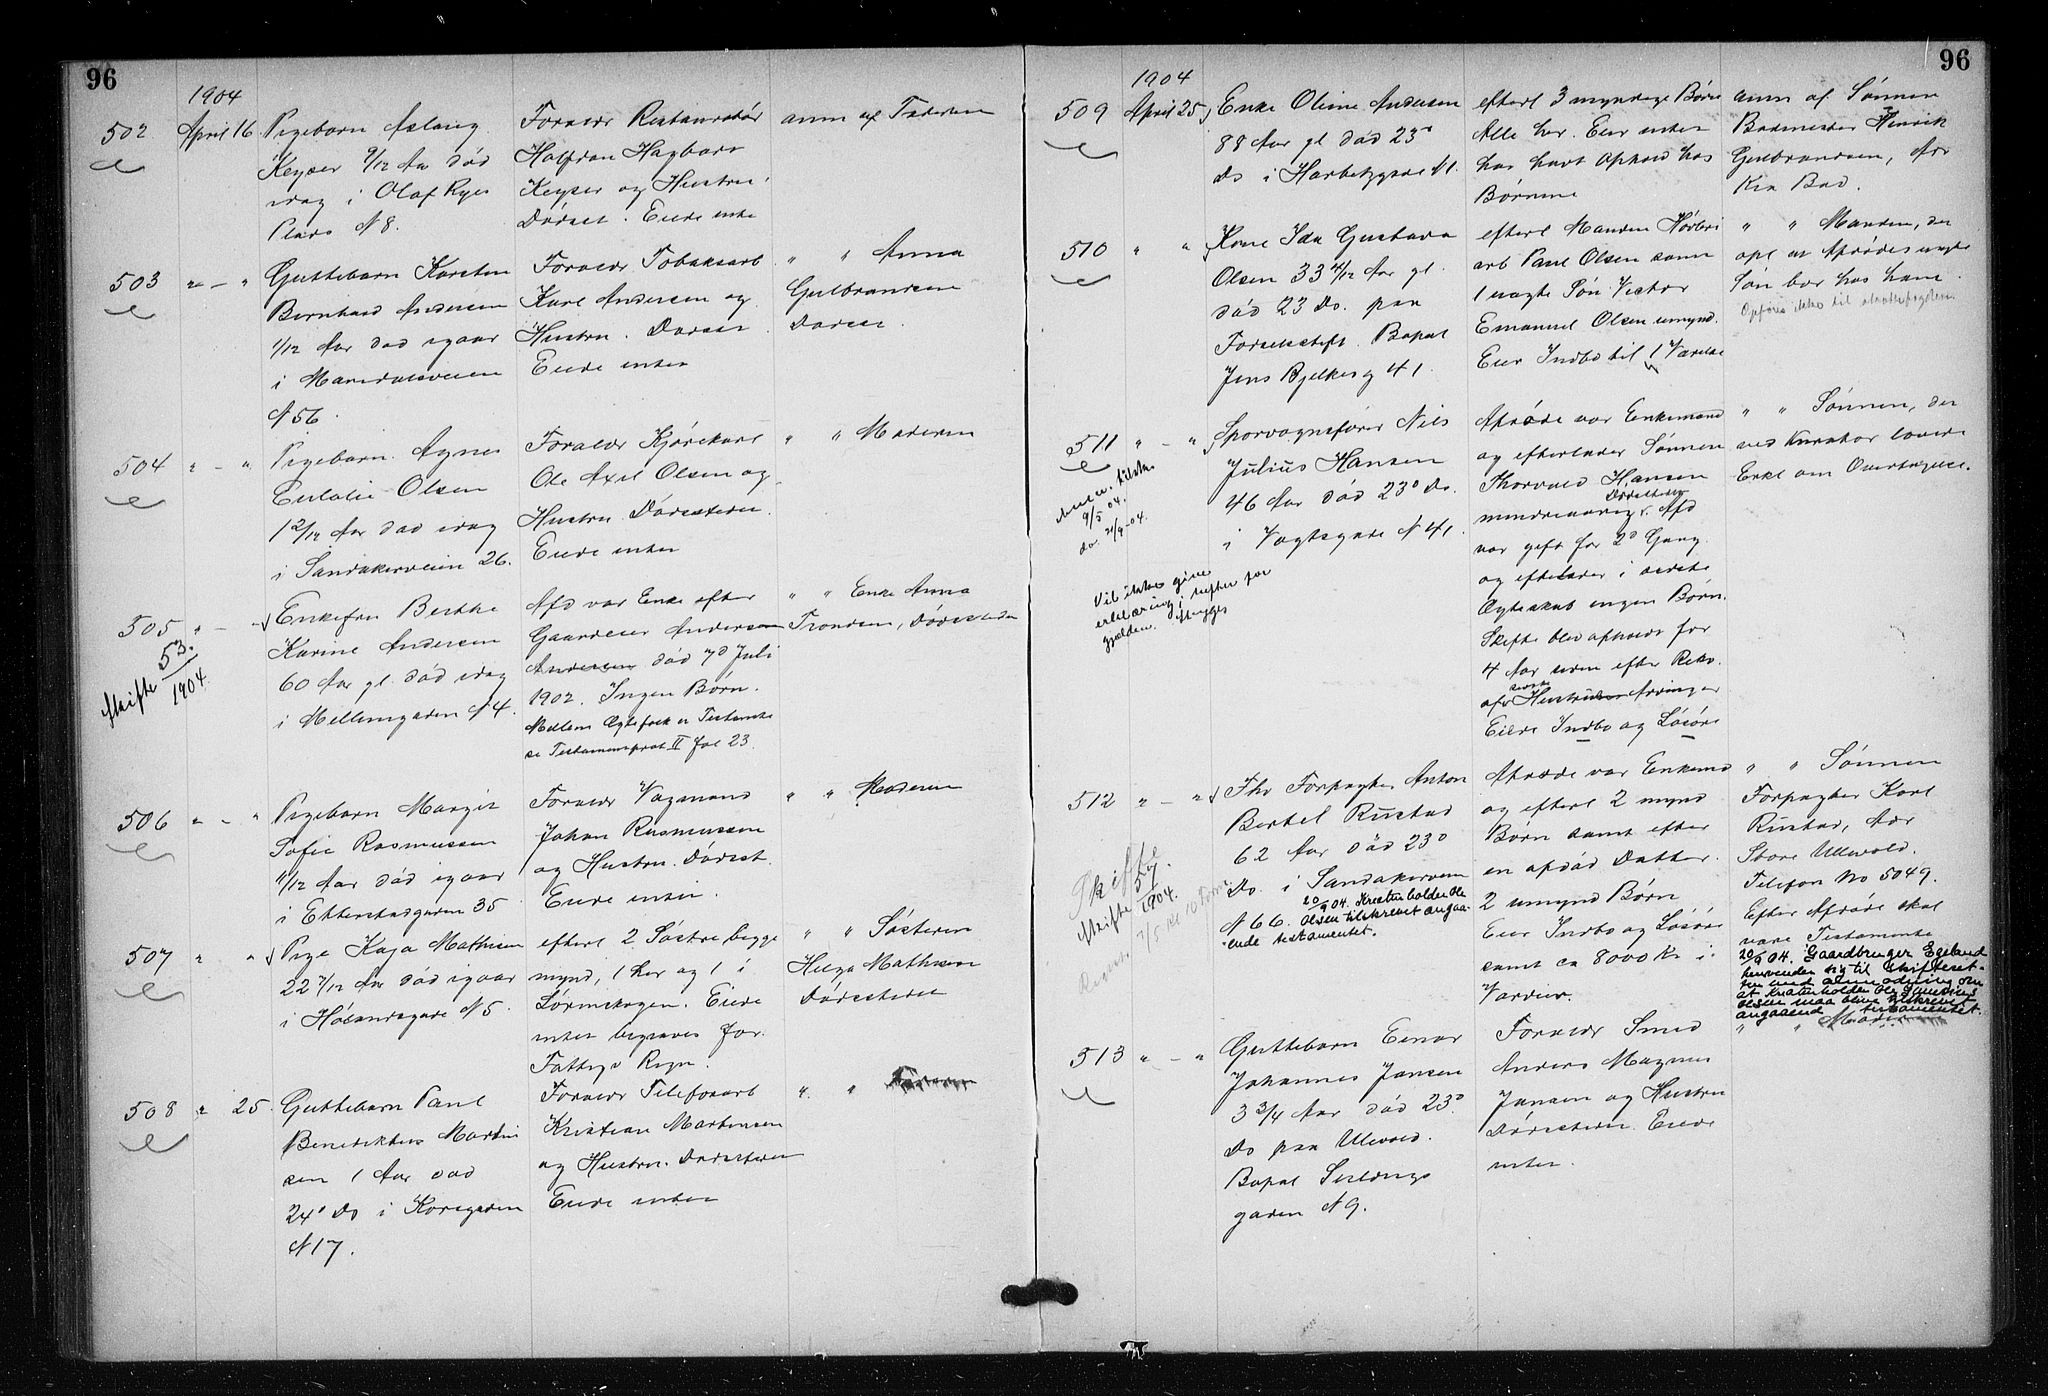 96
1904
502 April 16 Pigebarn Aslaug
Keyser 9/12 Aar død
idag i Olaf Ryes
Plads N 8.
Forældr Restauratør
Halfdan Hagbart
Keyser og Hustru.
Dødsst. Eiede intet
anm af Faderen
503 " - " Guttebarn Karsten
Bernhard Andersen
1/12 Aar død igaar
i Maridalsveien
N 56.
Forældr Tobaksarb
Karl Andersen og
Hustru. Dødsst.
Eiede intet
" " Anna
Gulbrandsen
Dødsst.
504 " - " Pigebarn Agnes
Eulalie Olsen
1 2/12 Aar død idag
i Sandakerveien 26.
Forældr Kjørekarl
Ole Axel Olsen og
Hustru Dødsstedet.
Eiede intet
" " Moderen
505 " - " Enkefru Berthe
Karine Andersen
60 Aar gl. død idag
i Møllergaden N 4.
Skifte 53.
1904.
Afd var Enke efter
Gaardeier Andersen
Andersen død 7d Juli
1902. Ingen Børn.
Mellem Ægtefolk er Testamente
se Testamentsprot II fol 23.
" " Enke Anna
Trondsen, Dødsstedet
506 " - " Pigebarn Margit
Sofie Rasmussen
11/12 Aar død igaar
i Etterstadgaden 35
Forældr Vognmand
Johan Rasmussen
og Hustru. Dødsst.
Eiede intet.
" " Moderen
507 " " Pige Kaja Mathisen
22 7/12 Aar død igaar
i Hølandsgade N 5.
efterl 2 Søstre begge
mynd, 1 her og 1 i
Lørenskogen. Eiede
intet begraves for
Fattigv Regn.
" " Søsteren
Helga Mathisen
Dødsstedet
508 " 25. Guttebarn Paul
Benediktus Martin
sen 1 Aar død
24' Ds i Korsgaden
N 17.
Forældr Telefonarb
Kristian Martinsen
og Hustru. Dødsstedet
Eiede intet
" "
96
1904
509 April 25 Enke Oline Andersen
88 Aar gl død 23d
Ds i Harbitzgade 11.
efterl 3 myndige Børn
Alle her. Eier intet
har havt Ophold hos
Børnene
anm af Sønnen
Bademester Henrik
Gulbrandsen, Adr
Kra Bad.
510 " " Kone Ida Gustava
Olsen 33 4/12 Aar gl.
død 23 Ds. paa
Fødselsstift. Bopæl
Jens Bjelkesg 41.
efterl Manden
arb Paul Olsen samt
1 uægte Søn Victor
Emanuel Olsen umynd.
Eier Indbo til 1 Værelse
" " Manden, der
opl at Afdødes uægte
Søn bor hos ham.
Opføres ikke til
511 " - " Sporvognsfører Nils
Julius Hansen
46 Aar død 23d Ds.
i Vogtsgade N 41.
tilskr
9/5 04.
do. 21/9-04.
Vil ikke give
erklæring; hefter for
gjælden.
Afdøde var Enkemand
og efterlader Sønnen
Thorvald Hansen
Dødsstedet
mindreaarig. Afd
var gift for 2d Gang
og efterlader i sidste
Ægteskab ingen Børn.
Skifte blev afholdt for
4 Aar siden efter Rekv.
af sidste Hustrues Arvinger
Eiede Indbo og Løsøre
" " Sønnen, der
ved Kurator lovede
Erkl om Overtagelse.
512 " - " Fhv Forpagter Anton
Bertel Rustad
62 Aar død 23d
Ds. i Sandakerveien
N 66.
20/9 04. Kreaturholder Ole
Olsen tilskrevet angaa-
ende testamentet.
Skifte
Skifte 57.
1904.
7/5 kl 10 Form.
Afdøde var Enkemd
og efterl 2 mynd
Børn samt efter
en afdød Datter
2 umynd Børn
Eier Indbo og Løsøre
samt ca 8000 Kr i
Værdier.
" " Sønnen
Forpagter Karl
Rustad, Adr
Store Ullevold.
Telefon No 5049.
Efter Afdøde skal
være Testamente
20/9 04. Gaardbruger Egeland
henvender sig til Skifteret-
ten med anmodning om
at Kreaturholder Ole
Olsen maa blive tilskrevet
angaaend testamentet.
513 " - " Guttebarn Einar
Johannes Jansen
3 3/4 Aar død 23d
Ds paa Ullevold.
Bopæl Seildugs
gaden N 9.
Forældr Smed
Anders Magnus
Jansen og Hustru
Dødsstedet. Eiede
intet.
" " Moderen